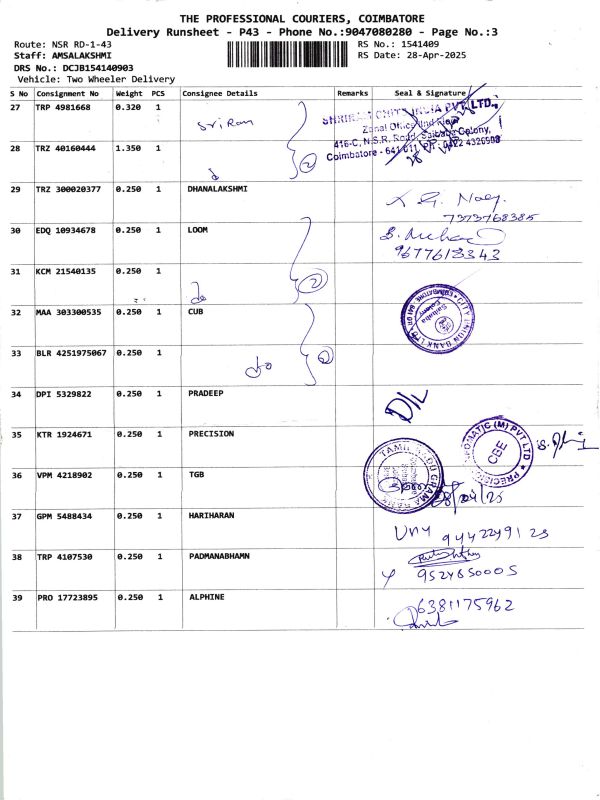 THE PROFESSIONAL COURIERS, COIMBATORE
Delivery Runsheet - P43 - Phone No.:9047080280 - Page No.:3
Route: NSR RD-1-43
RS No.: 1541409
Staff: AMSALAKSHMI
RS Date: 28-Apr-2025
DRS No.: DCJB154140903
Vehicle: Two Wheeler Delivery
S No Consignment No Weight PCS Consignee Details Remarks Seal & Signature
27 TRP 4981668 0.320 1 Sri Ram
SHRIRAM CHITS INDIA PVT. LTD.,
Zonal Office 2nd Floor
416-C, N.S.R. Road, Saibaba Colony,
Coimbatore - 641 011. PH : 0422 4326998
28 TRZ 40160444 1.350 1 do 2
29 TRZ 300020377 0.250 1 DHANALAKSHMI
7373768385
30 EDQ 10934678 0.250 1 LOOM
9677613343
31 KCM 21540135 0.250 1 do 2
32 MAA 303300535 0.250 1 CUB
CITY UNION BANK LTD
Saibaba Colony
33 BLR 4251975067 0.250 1 do 2
34 DPI 5329822 0.250 1 PRADEEP D/L
35 KTR 1924671 0.250 1 PRECISION
PRECISION INFOMATIC (M) PVT LTD
CBE
36 VPM 4218902 0.250 1 TGB
TAMIL NADU GRAMA BANK
28/04/25
37 GPM 5488434 0.250 1 HARIHARAN
9442249123
38 TRP 4107530 0.250 1 PADMANABHAMN
9524650005
39 PRO 17723895 0.250 1 ALPHINE
6381175962